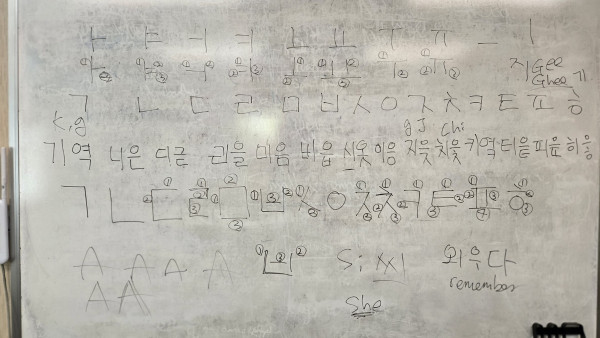 ㅏ ㅑ ㅓ ㅕ ㅗ ㅛ ㅜ ㅠ ㅡ ㅣ
지 Gee
Ghee 기
ㄱ ㄴ ㄷ ㄹ ㅁ ㅂ ㅅ ㅇ ㅈ ㅊ ㅋ ㅌ ㅍ ㅎ
K,g g J chi
기역 니은 디귿 리을 미음 비읍 시옷 이응 지읒 치읓 키역 티읕 피읖 히읗
ㄱ ㄴ ㄷ ㄹ ㅁ ㅂ ㅅ ㅇ ㅈ ㅊ ㅋ ㅌ ㅍ ㅎ
A A A A ㅂ Si 씨 외우다
A A remember
She